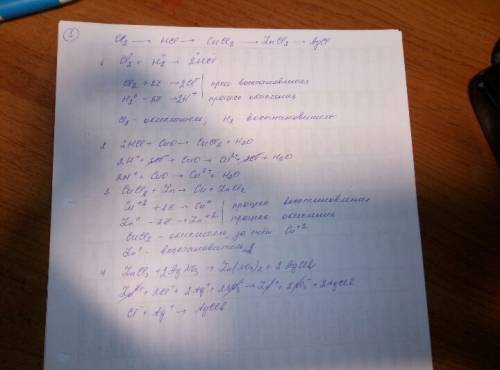 ① Cl₂ → HCl → CuCl₂ → ZnCl₂ → AgCl
1. Cl₂⁰ + H₂⁰ → 2HCl
Cl₂ + 2ē → 2Cl⁻ | процесс восстановления
H₂⁰ - 2ē → 2H⁺ | процесс окисления
Cl₂ - окислитель, H₂ - восстановитель
2. 2HCl + CuO → CuCl₂ + H₂O
2H⁺ + 2Cl⁻ + CuO → Cu²⁺ + 2Cl⁻ + H₂O
2H⁺ + CuO → Cu²⁺ + H₂O
3. CuCl₂ + Zn → Cu + ZnCl₂
Cu⁺² + 2ē → Cu⁰ | процесс восстановления
Zn⁰ - 2ē → Zn⁺² | процесс окисления
CuCl₂ - окислитель, за счёт Cu⁺²
Zn⁰ - восстановитель
4. ZnCl₂ + 2AgNO₃ → Zn(NO₃)₂ + 2AgCl↓
Zn²⁺ + 2Cl⁻ + 2Ag⁺ + 2NO₃⁻ → Zn²⁺ + 2NO₃⁻ + 2AgCl↓
Cl⁻ + Ag⁺ → AgCl↓